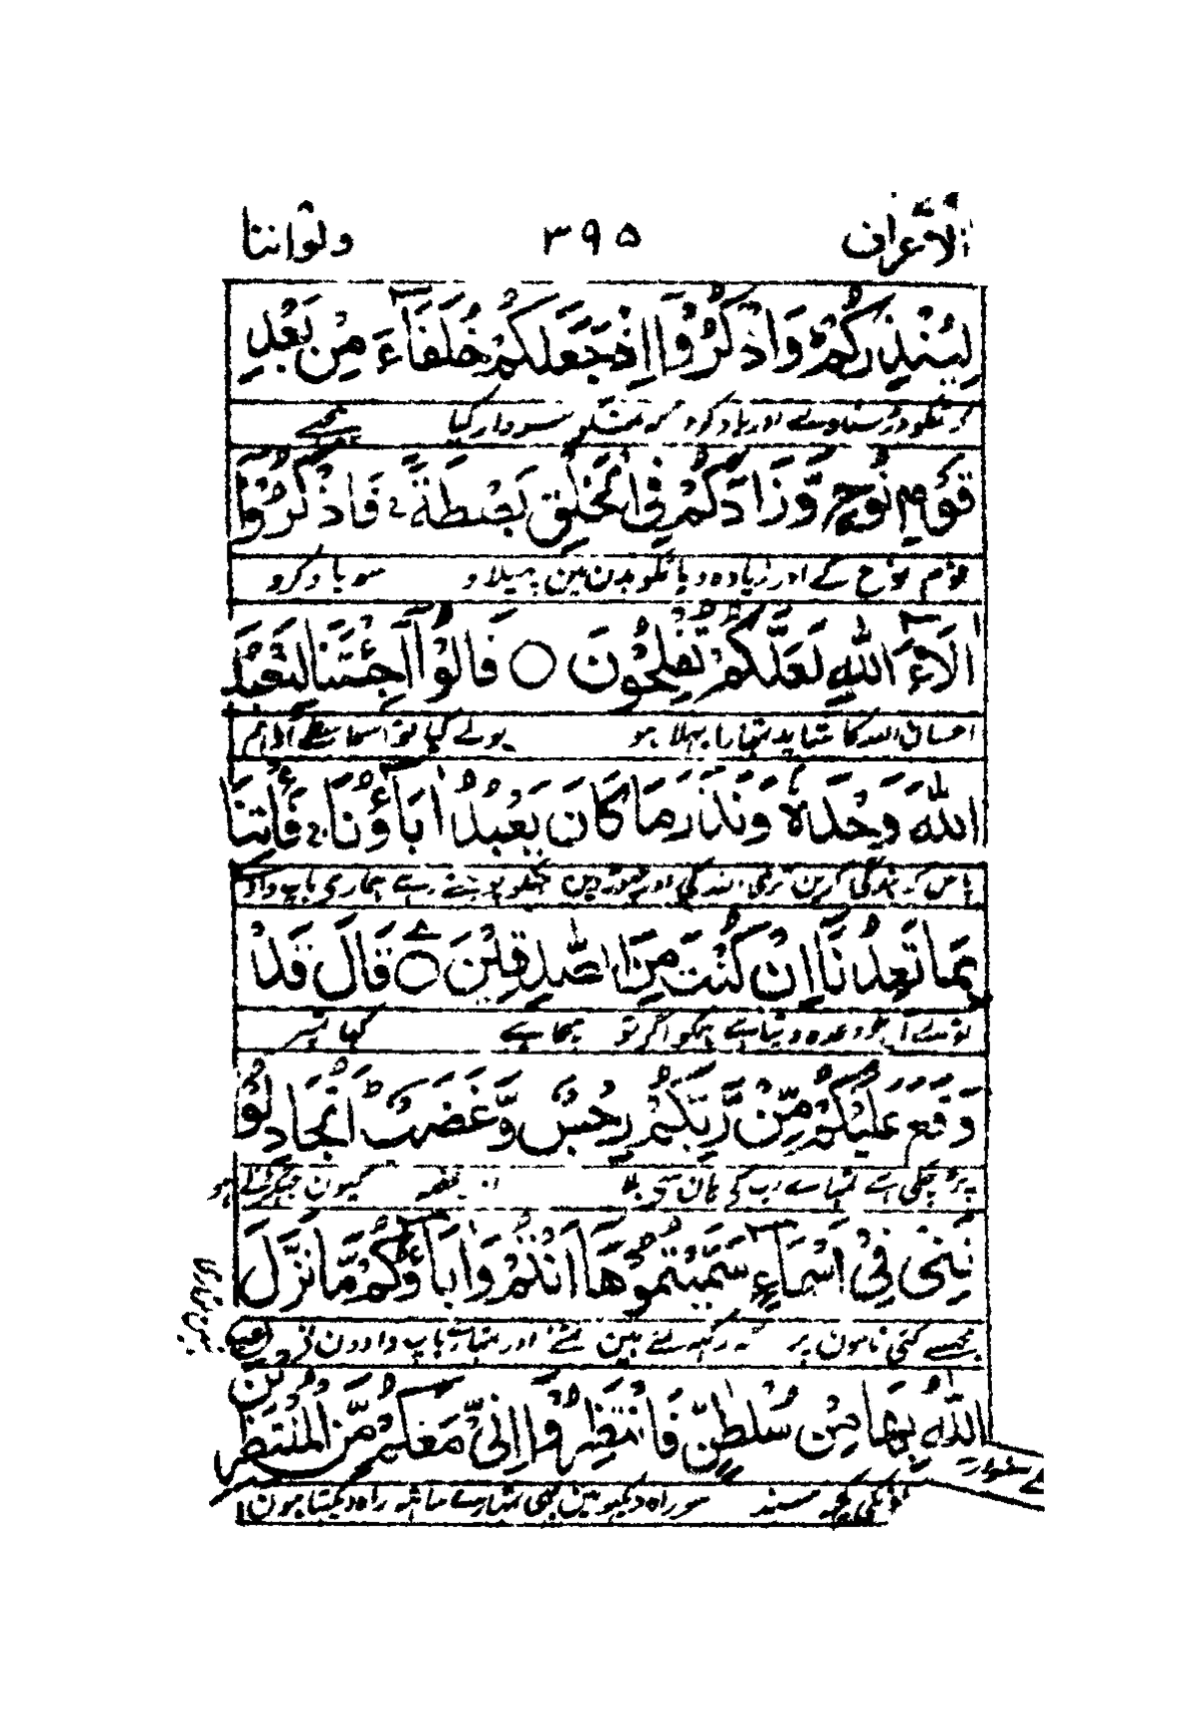 الاعراف ۳۹۵ ولواننا
لِيُنْذِرَكُمْ ط وَاذْكُرُوْٓا اِذْ جَعَلَكُمْ خُلَفَآءَ مِنْۢ بَعْدِ
کہ تمکو ڈر سناوے اور یاد کرو کہ تمکو سردار کیا پیچھے
قَوْمِ نُوْحٍ وَّزَادَكُمْ فِى الْخَلْقِ بَصْۜطَةً ج فَاذْكُرُوْٓا
قوم نوح کے اور زیادہ دیا تمکو بدن مین پھیلاو سو یاد کرو
اٰلَآءَ اللّٰهِ لَعَلَّكُمْ تُفْلِحُوْنَ ○ قَالُوْٓا اَجِئْتَنَا لِنَعْبُدَ
احسان اللہ کا شاید تمہارا بہلا ہو بولے کیا تو اسواسطے آیا ہم
اللّٰهَ وَحْدَهٗ وَنَذَرَ مَا كَانَ يَعْبُدُ اٰبَآؤُنَا ج فَاْتِنَا
پاس کہ بندگی کرین نری اللہ کی اور چھوڑدین جنکو پوجتے رہے ہماری باپ دادے
بِمَا تَعِدُنَآ اِنْ كُنْتَ مِنَ الصّٰدِقِيْنَ ○ قَالَ قَدْ
تو لے آ جو وعدہ دیتا ہے ہمکو اگر تو سچا ہے کہا
وَقَعَ عَلَيْكُمْ مِّنْ رَّبِّكُمْ رِجْسٌ وَّغَضَبٌ ط اَتُجَادِلُوْ
پڑ چکی ہے تمہارے رب کی ہان سی بلا اور غصہ کیون جھگڑتے ہو
نَنِىْ فِىْٓ اَسْمَآءٍ سَمَّيْتُمُوْهَآ اَنْتُمْ وَاٰبَآؤُكُمْ مَّا نَزَّلَ
مجھسے کئی نامون پر کہ رکھہ لئے ہین تمنے اور تمہارے باپ دادون نے نہین
اللّٰهُ بِهَا مِنْ سُلْطٰنٍ فَانْتَظِرُوْٓا اِنِّىْ مَعَكُمْ مِّنَ الْمُنْتَظِرِيْنَ
اونکی کچھہ سند سو راہ دیکھو مین بھی تمہارے ساتھہ راہ دیکھتا ہون